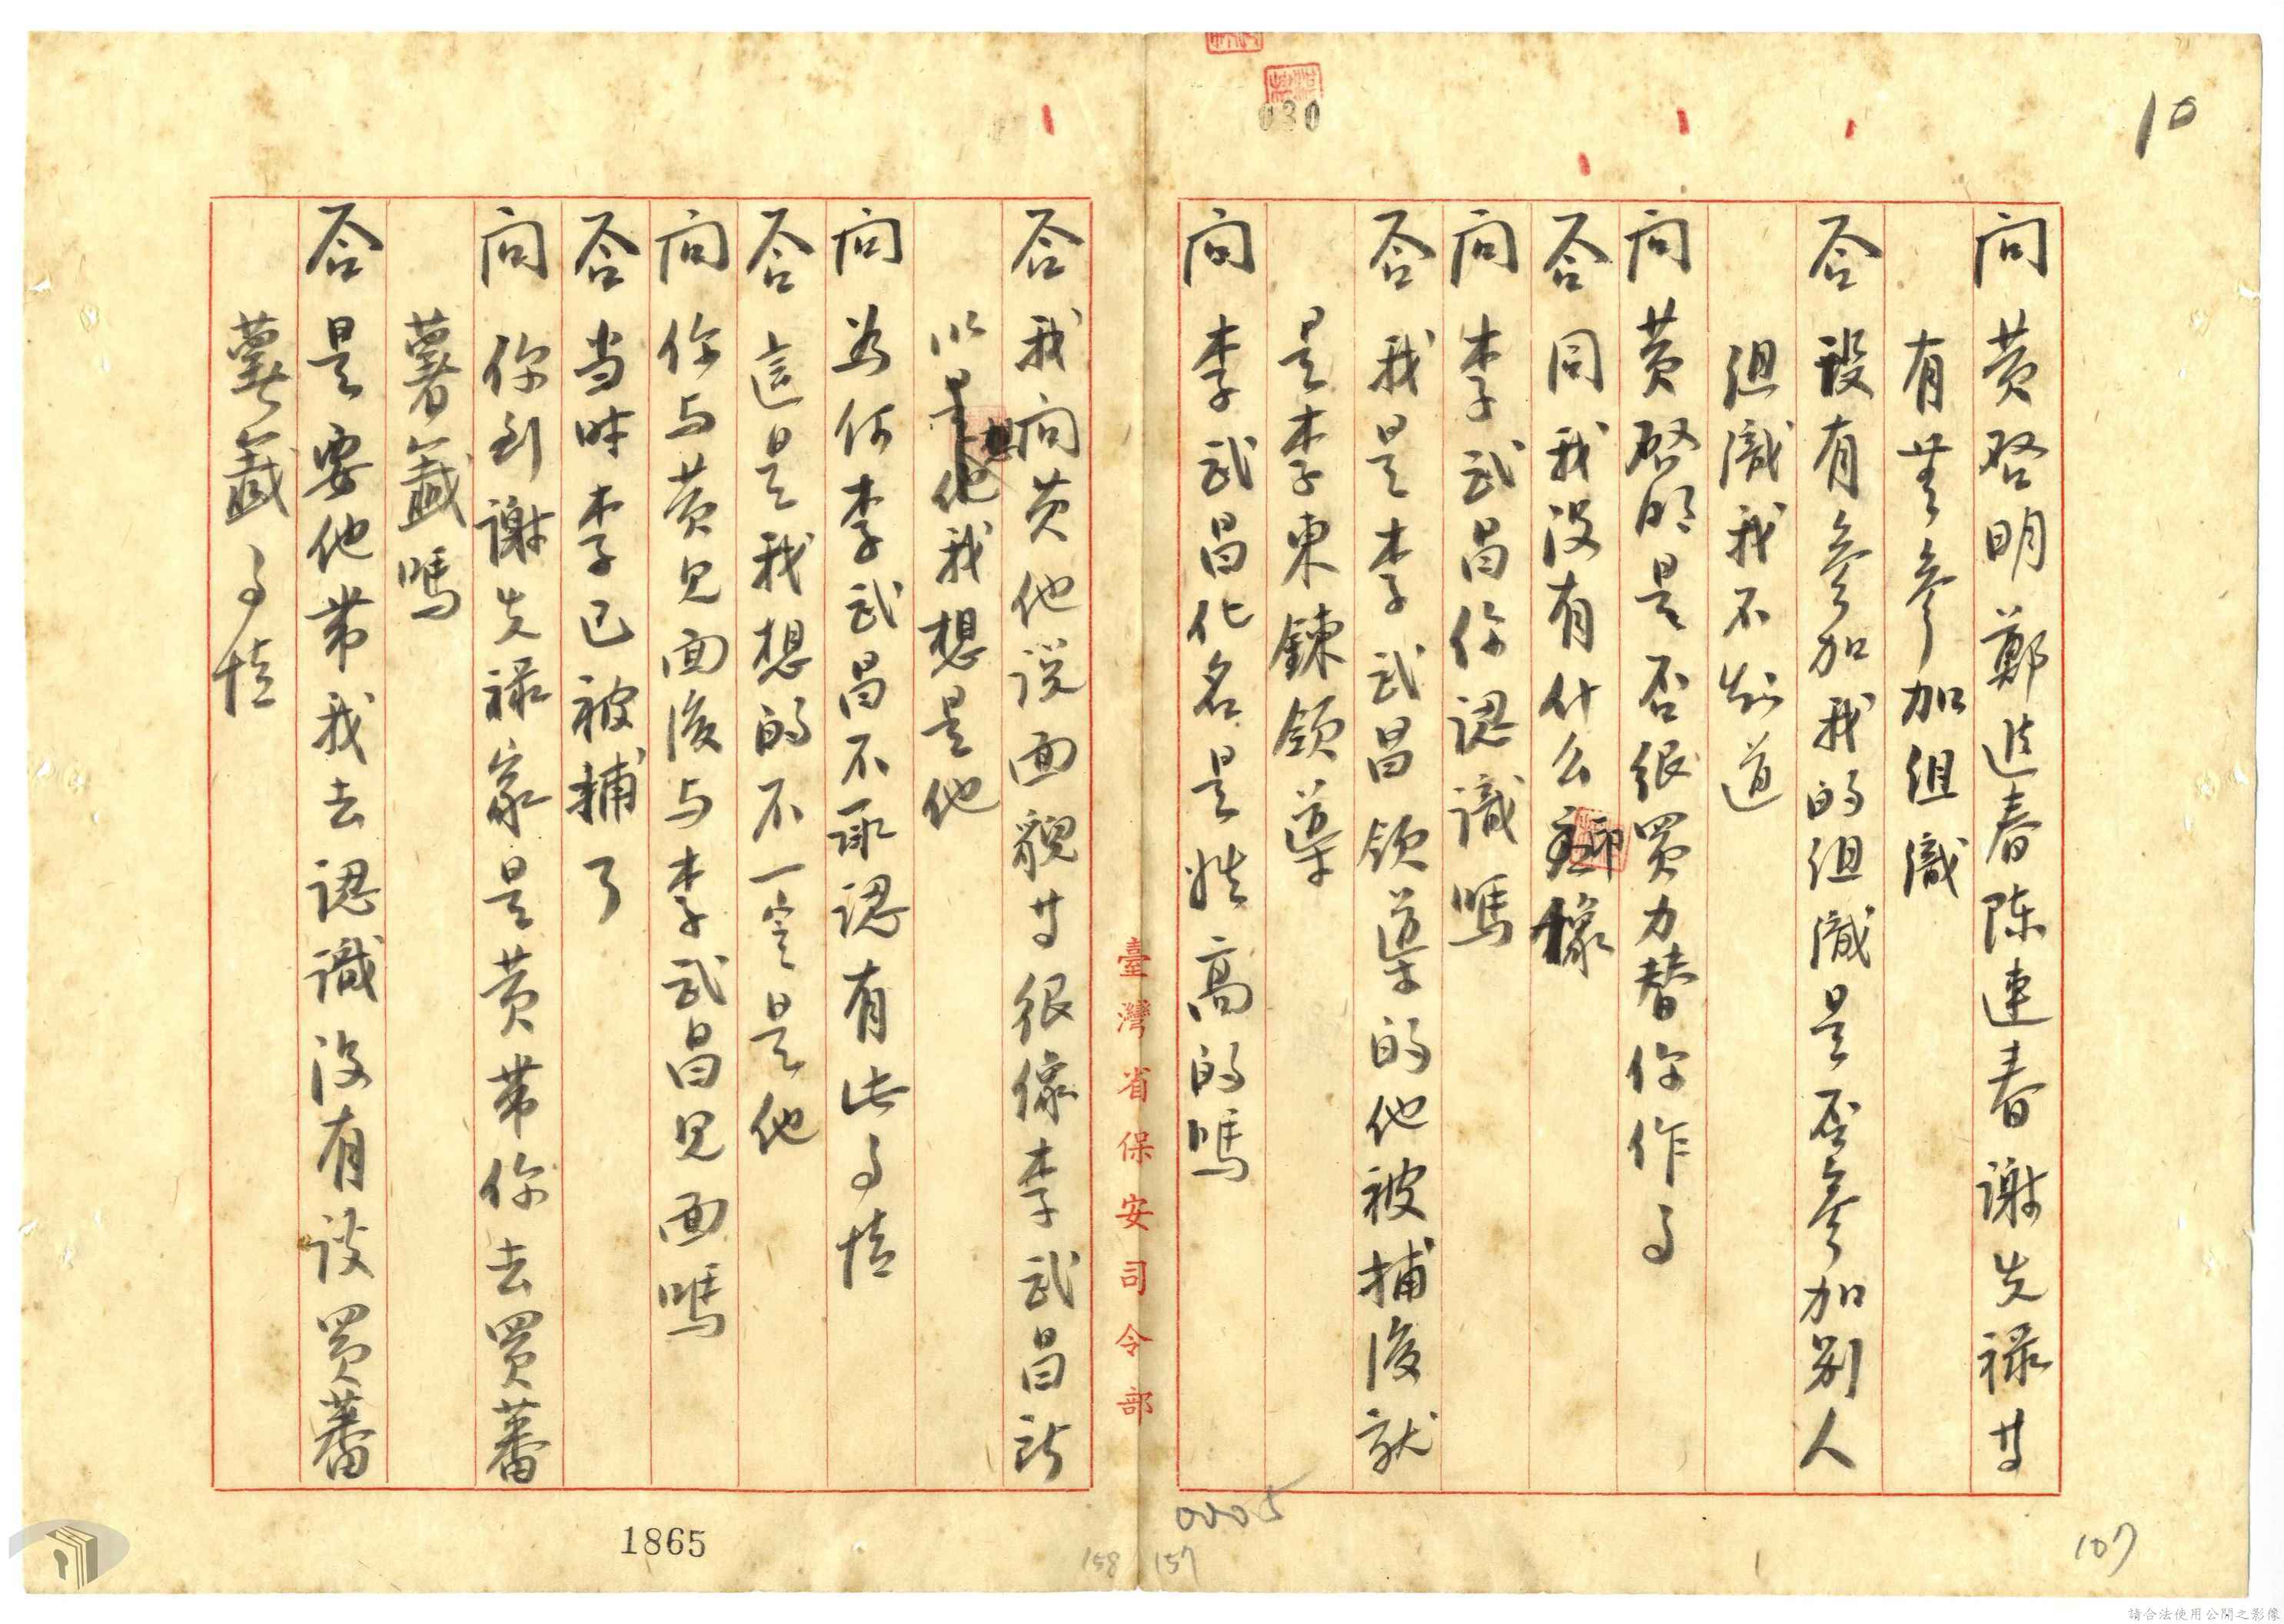 10
030
問 黄啓明鄭進春陳連春謝先祿等
有無參加組識
答 設有參加我的組識是否參加別人
組識我不知道
問 黄啓明是否很買力替你作事
答 同我没有什么
問 李武昌你認識嗎
答 我是李武昌領導的他被捕後就
是李東鍊領導
問 李武昌化名是姓高的嗎
臺灣省保安司令部
答 我問黄他説面貌等很像李武昌所
以想他我想是他
問 為何李武昌不承認有此事情
答 這是我想的不一定是他
問 你与黄見面後与李武昌見面嗎
答 当时李已被捕了
問 你到謝先祿家是黄带你去買蕃
薯籤嗎
答 是要他带我去認識没有談買蕃
薯籤事情
0005
107
157
158
1865
請合法使用公開之影像